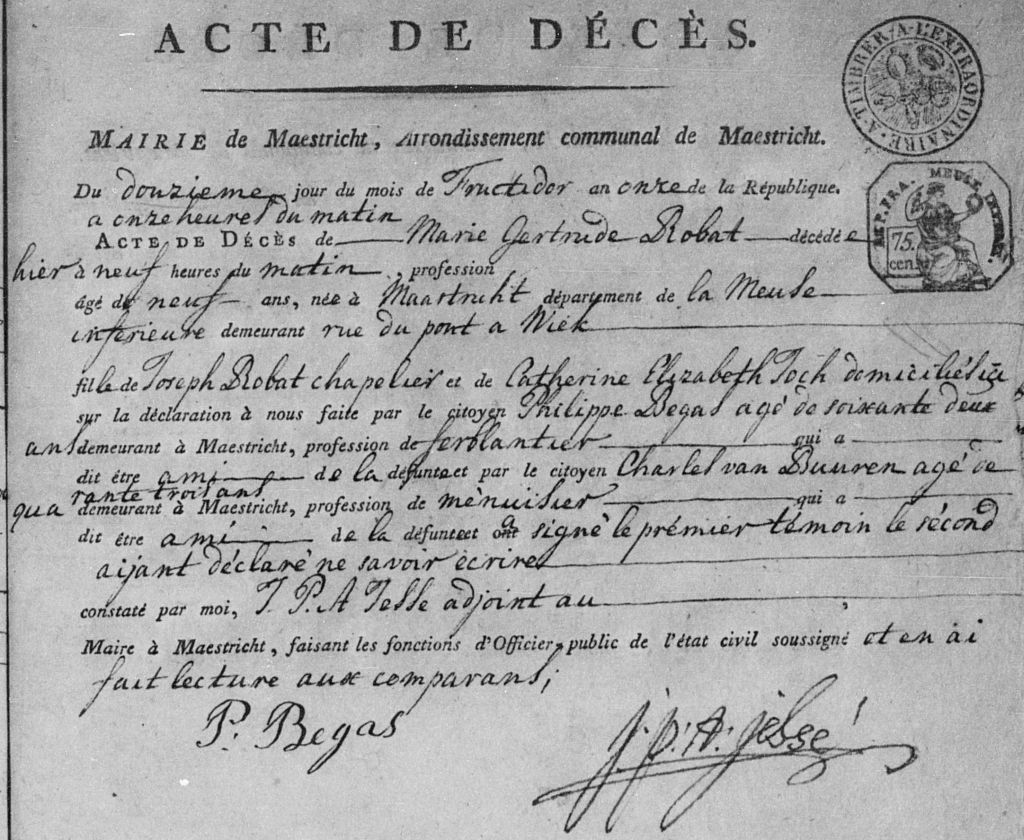 ACTE DE DÉCÈS.
A TIMBRER A L'EXTRAORDINAIRE
MAIRIE de Maestricht, Arrondissement communal de Maestricht.
MEUSE
75.
cen.
Du douzieme jour du mois de Fructidor an onze de la République.
a onze heures du matin
ACTE DE DÉCÈS de Marie Gertrude Robat décédée
hier à neuf heures du matin, profession
âgé de neuf ans, née à Maastricht département de la Meuse
inferieure demeurant rue du pont a Wiek
fille de Joseph Robat chapelier et de Catherine Elizabeth Toch domiciliés ici
sur la déclaration à nous faite par le citoyen Philippe Begas agé de soixante deux
ans demeurant à Maestricht, profession de ferblantier qui a
dit être ami de la défunte et par le citoyen Charles van Buuren agé de
qua rante trois ans
demeurant à Maestricht, profession de ménuisier qui a
dit être ami de la défunte et a signé le prémier témoin le sécond
aijant déclaré ne savoir écrire
constaté par moi, J. P. A Jesse adjoint au ,
Maire à Maestricht, faisant les fonctions d'Officier public de l'état civil soussigné et en ai
fait lecture aux comparans;
P. Begas
j: p: A: jessé